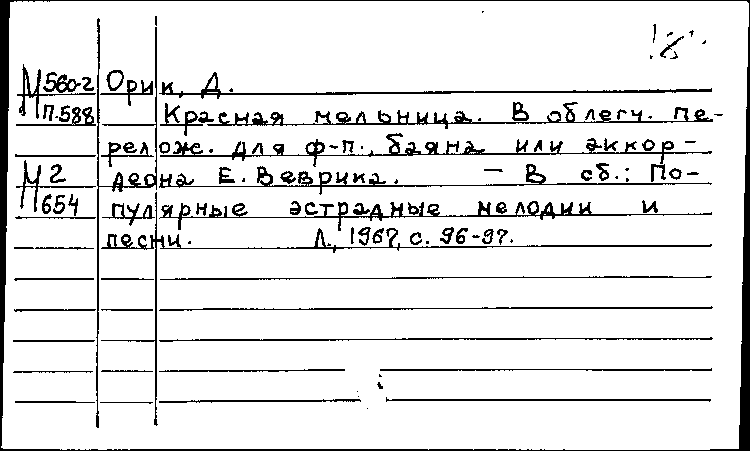 М 560-2 Орик, Д.
П-588 Красная мельница. В облегч. пе-
релож. для ф-п., баяна или аккор-
М 2 деона Е. Веврика. — В сб.: По-
654 пулярные эстрадные мелодии и
песни. Л., 1967, с. 96-97.